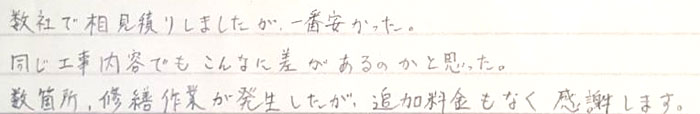 数社で相見積りしましたが、一番安かった。
同じ工事内容でもこんなに差があるのかと思った。
数箇所、修繕作業が発生したが、追加料金もなく感謝します。